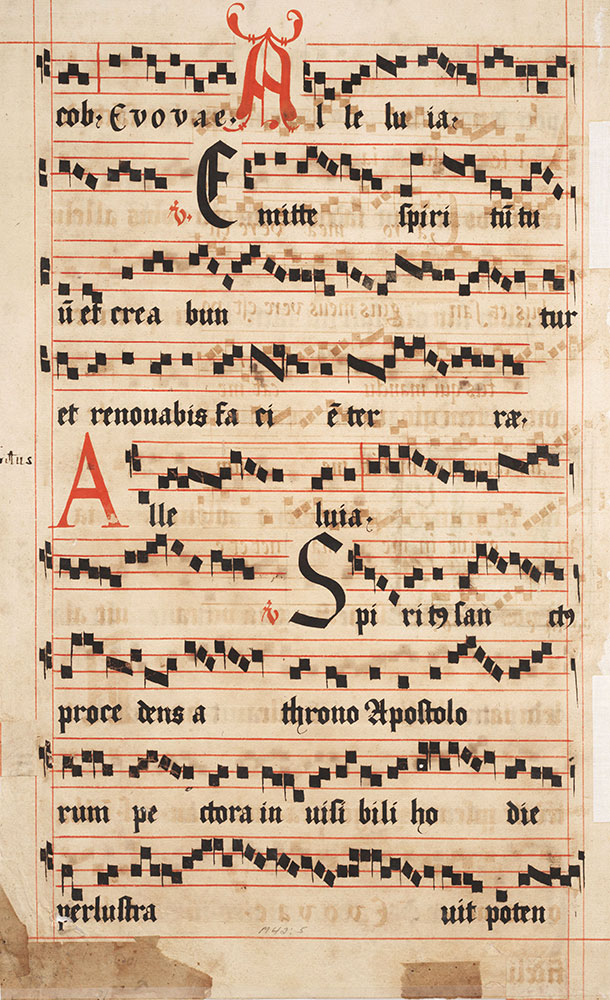 cob. Evovae. Al le lu ia.
℣. Emitte spiri tū tu
ū et crea bun tur
et renouabis fa ci ē ter ræ.
Alle luia.
℣ Spi ritꝯ san ctꝯ
proce dens a throno Apostolo
rum pe ctora in uisi bili ho die
perlustra uit poten
M42:5